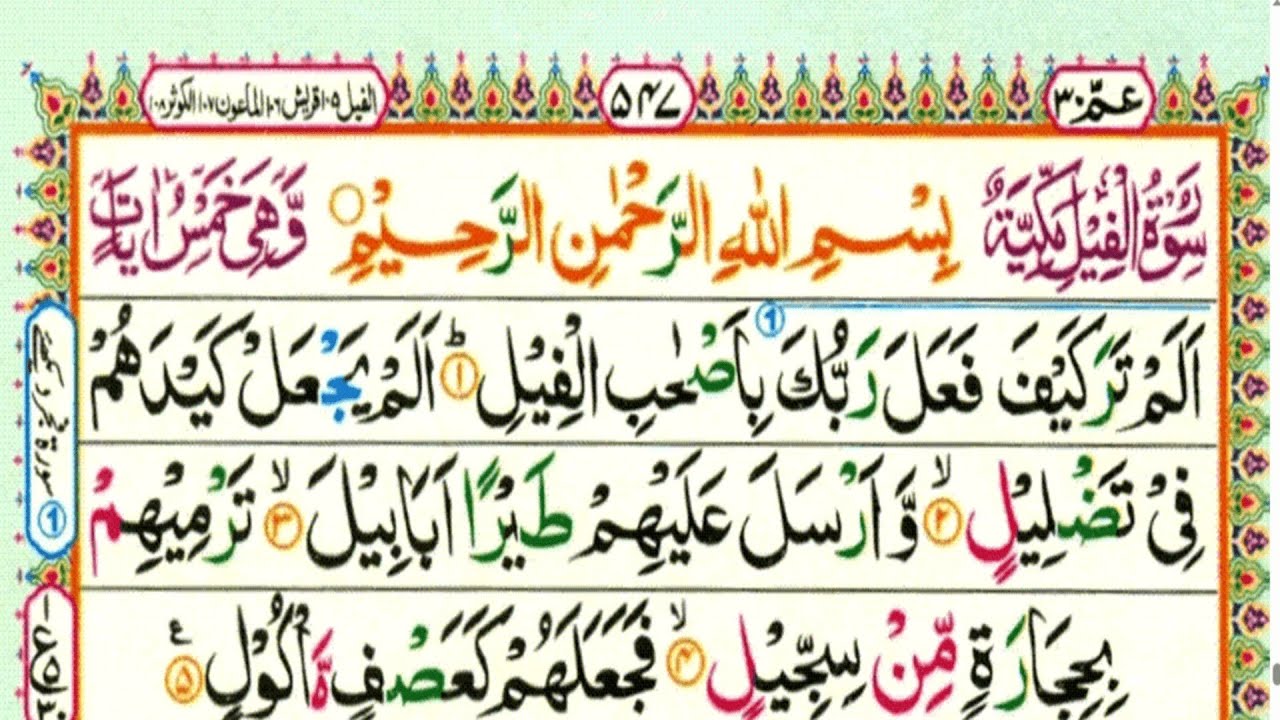 عمّ ٣٠
۵۴۷
الفیل ١٠۵ قریش ١٠٦ الماعون ١٠٧ الکوثر ١٠٨
سُوْرَةُ الْفِيْلِ مَكِّيَّةٌ
بِسْمِ اللهِ الرَّحْمٰنِ الرَّحِيْمِ
وَّهِىَ خَمْسُ اٰيَاتٍ
اَلَمْ تَرَ كَيْفَ فَعَلَ رَبُّكَ بِاَصْحٰبِ الْفِيْلِ ؕ ١ اَلَمْ يَجْعَلْ كَيْدَهُمْ
فِىْ تَضْلِيْلٍ ۙ ٢ وَّاَرْسَلَ عَلَيْهِمْ طَيْرًا اَبَابِيْلَ ۙ ٣ تَرْمِيْهِمْ
بِحِجَارَةٍ مِّنْ سِجِّيْلٍ ۙ ۴ فَجَعَلَهُمْ كَعَصْفٍ مَّاْكُوْلٍ ۵ ع
١
١